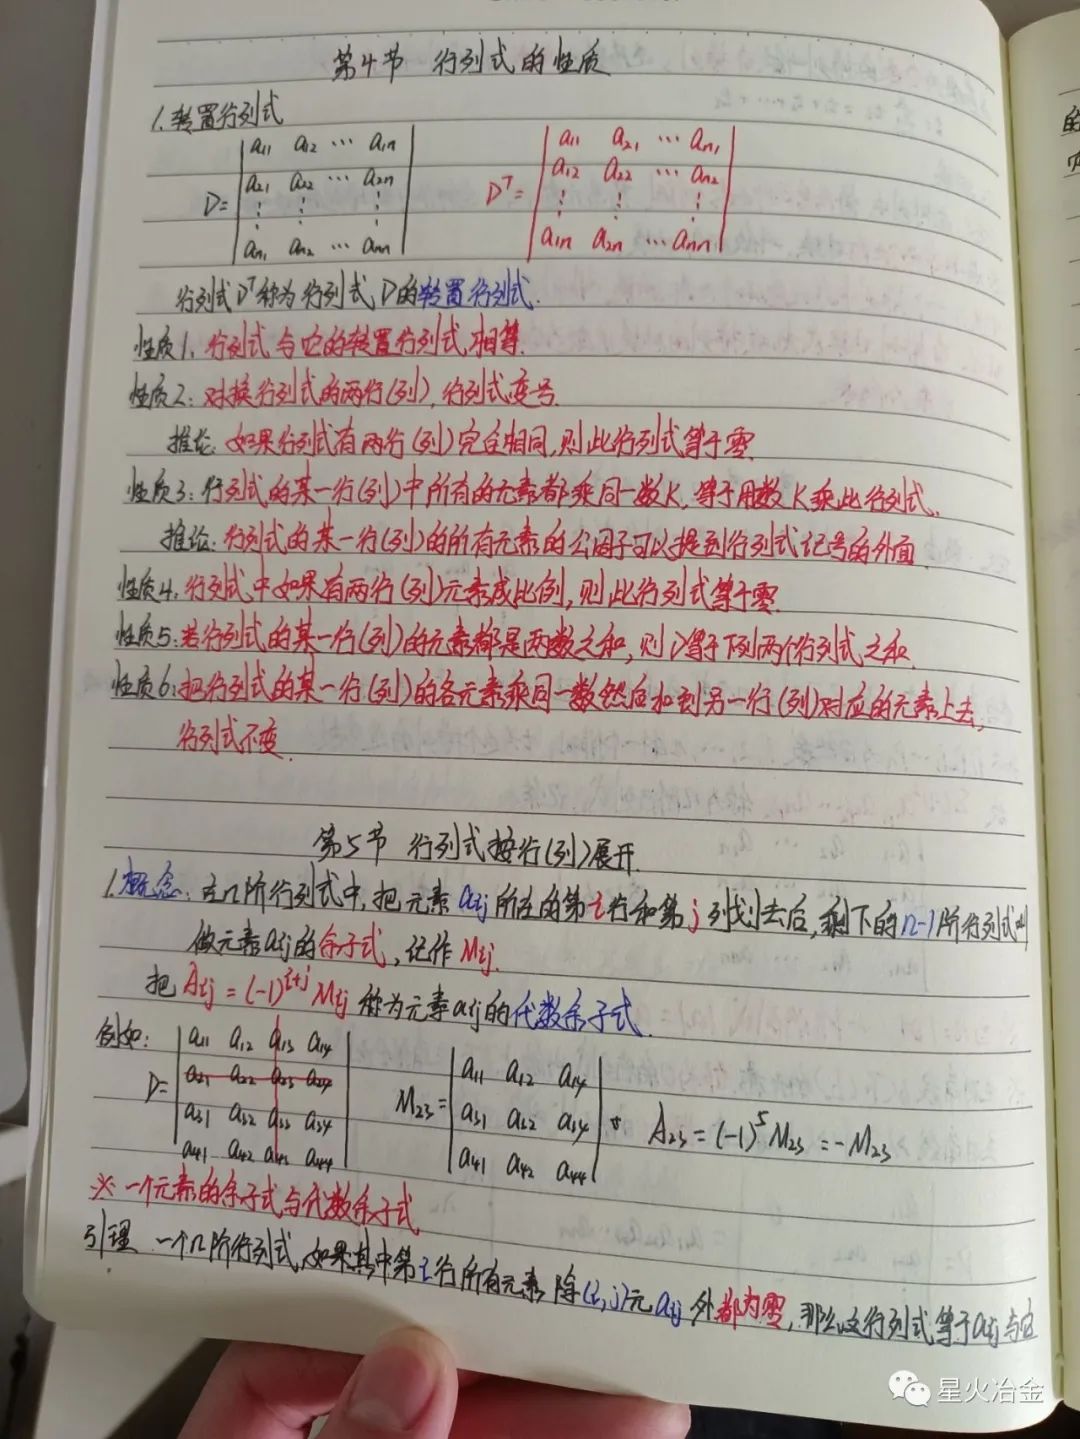 第4节 行列式的性质
1.转置行列式
D= | a11 a12 ⋯ a1n | Dᵀ= | a11 a21 ⋯ an1 |
| a21 a22 ⋯ a2n | | a12 a22 ⋯ an2 |
| ⋮ ⋮ ⋮ | | ⋮ ⋮ ⋮ |
| an1 an2 ⋯ ann | | a1n a2n ⋯ ann |
行列式Dᵀ称为行列式D的转置行列式.
性质1.行列式与它的转置行列式相等.
性质2:对换行列式的两行(列),行列式变号.
推论:如果行列式有两行(列)完全相同,则此行列式等于零.
性质3:行列式的某一行(列)中所有的元素都乘同一数K,等于用数K乘此行列式.
推论:行列式的某一行(列)的所有元素的公因子可以提到行列式记号的外面.
性质4.行列式中如果有两行(列)元素成比例,则此行列式等于零.
性质5:若行列式的某一行(列)的元素都是两数之和,则D等于下列两个行列式之和.
性质6:把行列式的某一行(列)的各元素乘同一数然后加到另一行(列)对应的元素上去,
行列式不变.
第5节 行列式按行(列)展开.
1.概念:在n阶行列式中,把元素aij所在的第i行和第j列划去后,剩下的n-1阶行列式叫
做元素aij的余子式,记作Mij.
把Aij=(-1)^(i+j) Mij称为元素aij的代数余子式.
例如: D= | a11 a12 a13 a14 | M23= | a11 a12 a14 | A23=(-1)^5 M23=-M23
| a21 a22 a23 a24 | | a31 a32 a34 |
| a31 a32 a33 a34 | | a41 a42 a44 |
| a41 a42 a43 a44 |
※一个元素的余子式与代数余子式
引理 一个n阶行列式,如果其中第i行所有元素除(i,j)元aij外都为零,那么这行列式等于aij与它
星火冶金